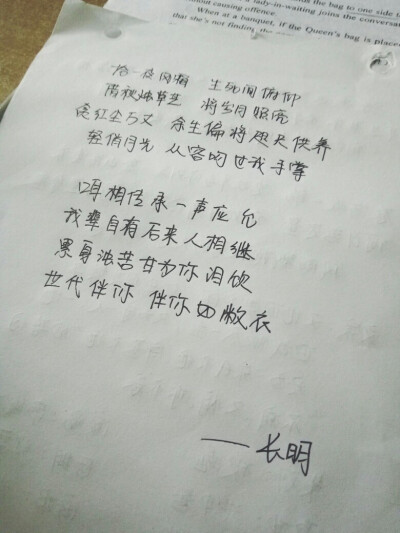 lady-in-waiting joins the conversat
without causing offence.
When at a banquet, if the Queen's bag is placed
that she's not finding
恰一夜风悄 生死间俯仰
借秋烛草芝 将岁月照亮
贪红尘万丈 余生偏将思灵供养
轻俏月光 从容吻过我手掌
口耳相传承一声应允
我辈自有后来人相继
累身浊苦甘为你泪饮
世代伴你 伴你如敝衣
——长明